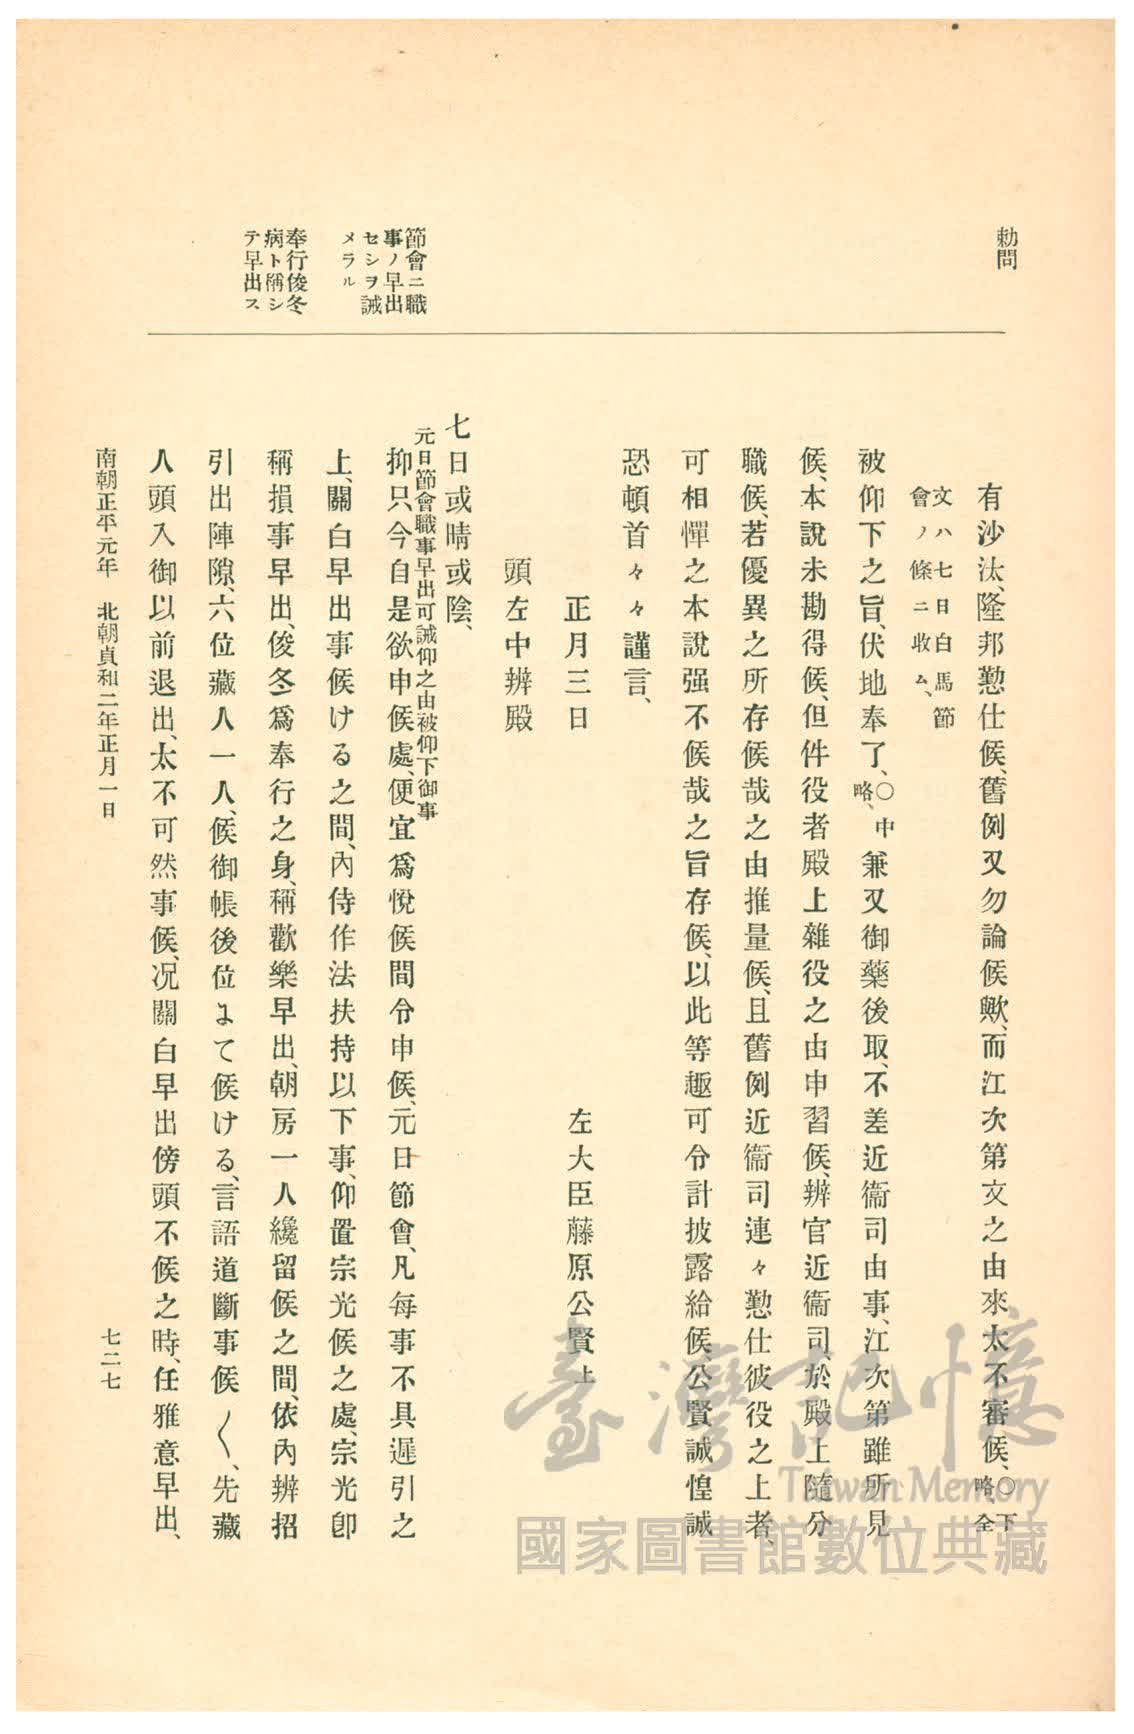 勅問
節會ニ職
事ノ早出
セシヲ誡
メラル
奉行俊冬
病ト稱シ
テ早出ス
有沙汰、隆邦懃仕候、舊例又勿論候歟、而江次第文之由來、太不審候、○下略、全
文ハ七日白馬節
會ノ條ニ收ム、
被仰下之旨、伏地奉了、○中略、兼又御藥後取、不差近衞司由事、江次第雖所見
候、本說未勘得候、但件役者殿上雜役之由申習候、辨官近衞司、於殿上隨分
職候、若優異之所存候哉之由推量候、且舊例近衞司連々懃仕彼役之上者、
可相憚之本說强不候哉之旨存候、以此等趣可令計披露給候、公賢誠惶誠
恐頓首々々謹言、
正月三日　左大臣藤原公賢上
頭左中辨殿
七日或晴或陰、
元日節會職事早出可誡仰之由被仰下御事
抑只今自是欲申候處、便宜爲悅候間令申候、元日節會、凡每事不具遲引之
上、關白早出事候ける之間、內侍作法扶持以下事、仰置宗光候之處、宗光卽
稱損事早出、俊冬爲奉行之身、稱歡樂早出、朝房一人纔留候之間、依內辨招
引出陣隙、六位藏人一人、候御帳後位まて候ける、言語道斷事候〱、先藏
人頭入御以前退出、太不可然事候、况關白早出傍頭不候之時、任雅意早出、
南朝正平元年　北朝貞和二年正月一日
七二七
臺灣記憶
Taiwan Memory
國家圖書館數位典藏